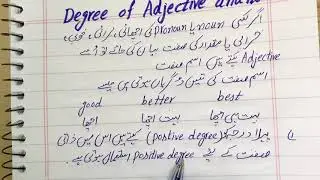 Degree of Adjective and
اگر کسی noun یا pronoun کی اچھائی، برائی، خوبی،
خرابی یا مقدار کی صفت بیان کی جائے تو اسے
Adjective کہتے ہیں اسم صفت
اسم صفت کی تین ڈگریاں ہوتی ہیں جیسے
good better best
اچھا بہت اچھا بہت ہی اچھا
1) پہلا درجہ (positive degree) کہتے ہیں اس میں ذاتی
صفت کے لیے positive degree استعمال ہوتی ہے۔